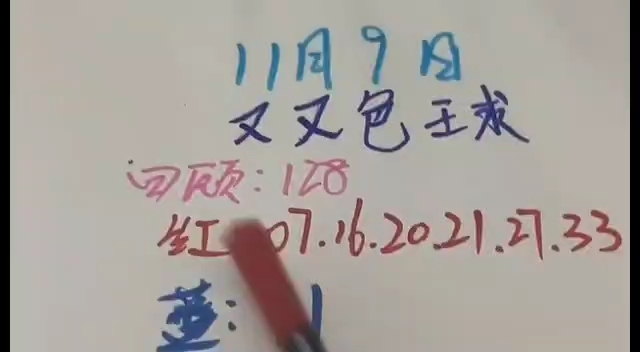 11月9日
又又色王求
回顾：128
红：07.16.20.21.27.33
蓝：1